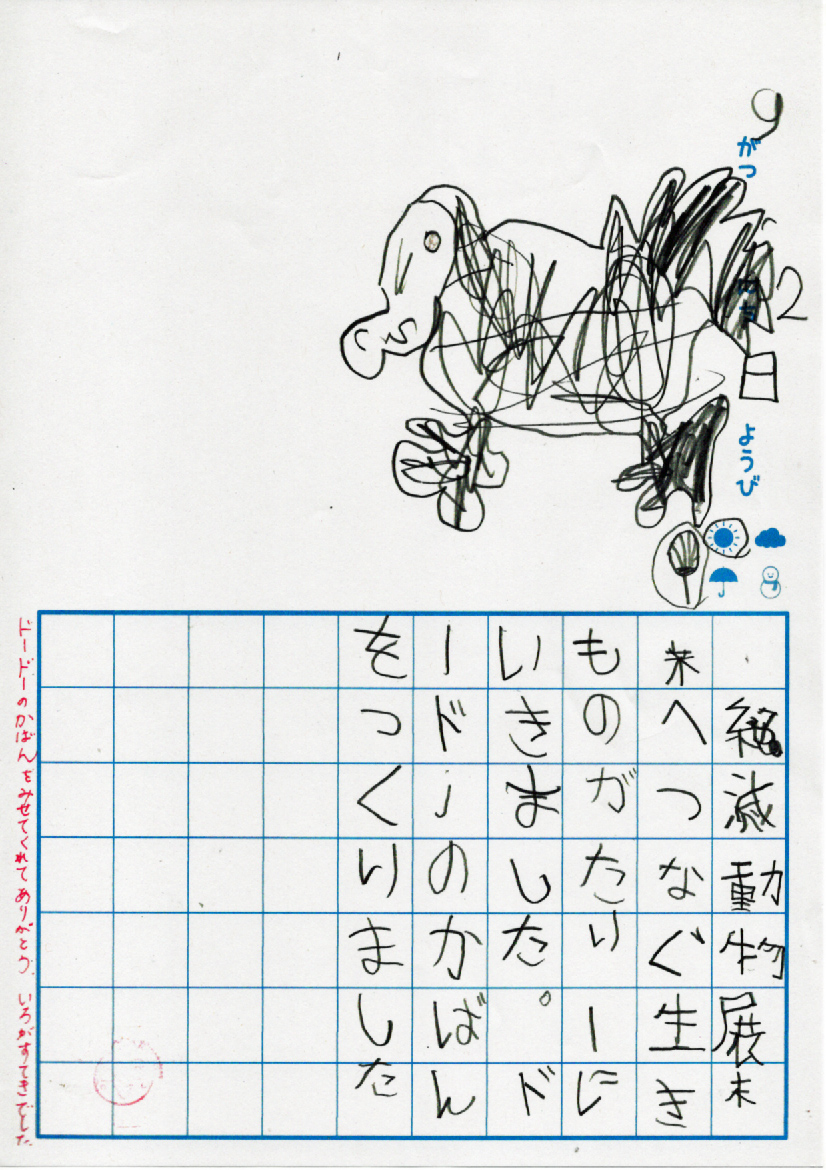 9がつ2にち日ようび
絶滅動物展未
来へつなぐ生き
ものがたりーに
いきました。ド
ードーのかばん
をつくりました
ドードーのかばんをみせてくれてありがとう。いろがすてきでした。